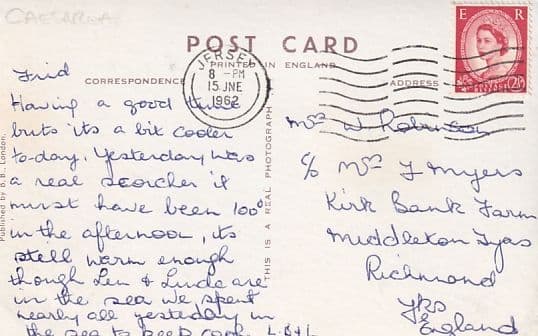 CAESAREA
POST CARD
PRINTED IN ENGLAND
CORRESPONDENCE
ADDRESS
E R
POSTAGE REVENUE
2½D
JERSEY
8 - PM
15 JNE
1962
Published by B.B., London.
THIS IS A REAL PHOTOGRAPH
Frid
Having a good time
buts its a bit cooler
to-day, Yesterday was
a real scorcher it
must have been 100°
in the afternoon, its
still warm enough
though Len & Linda are
in the sea we spent
nearly all yesterday in
the sea to keep cool.
Mrs W Robinson
c/o Mrs J Myers
Kirk Bank Farm
Middleton Tyas
Richmond
Yks
England